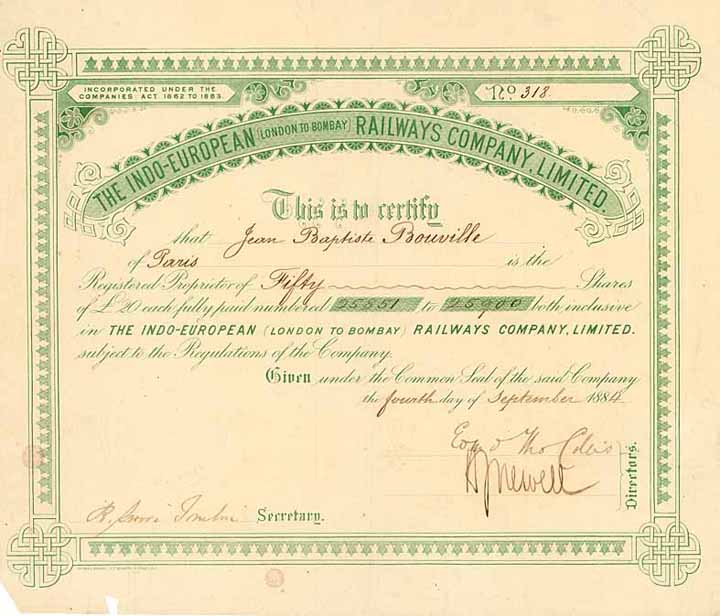 INCORPORATED UNDER THE
COMPANIES ACT 1862 TO 1883.
No. 318
THE INDO-EUROPEAN (LONDON TO BOMBAY) RAILWAYS COMPANY, LIMITED.
This is to certify
that Jean Baptiste Bouville
of Paris is the
Registered Proprietor of Fifty Shares
of £20 each fully paid numbered 25851 to 25900 both inclusive
in THE INDO-EUROPEAN (LONDON TO BOMBAY) RAILWAYS COMPANY, LIMITED.
subject to the Regulations of the Company.
Given under the Common Seal of the said Company
the fourth day of September 1884
Directors.
Secretary.